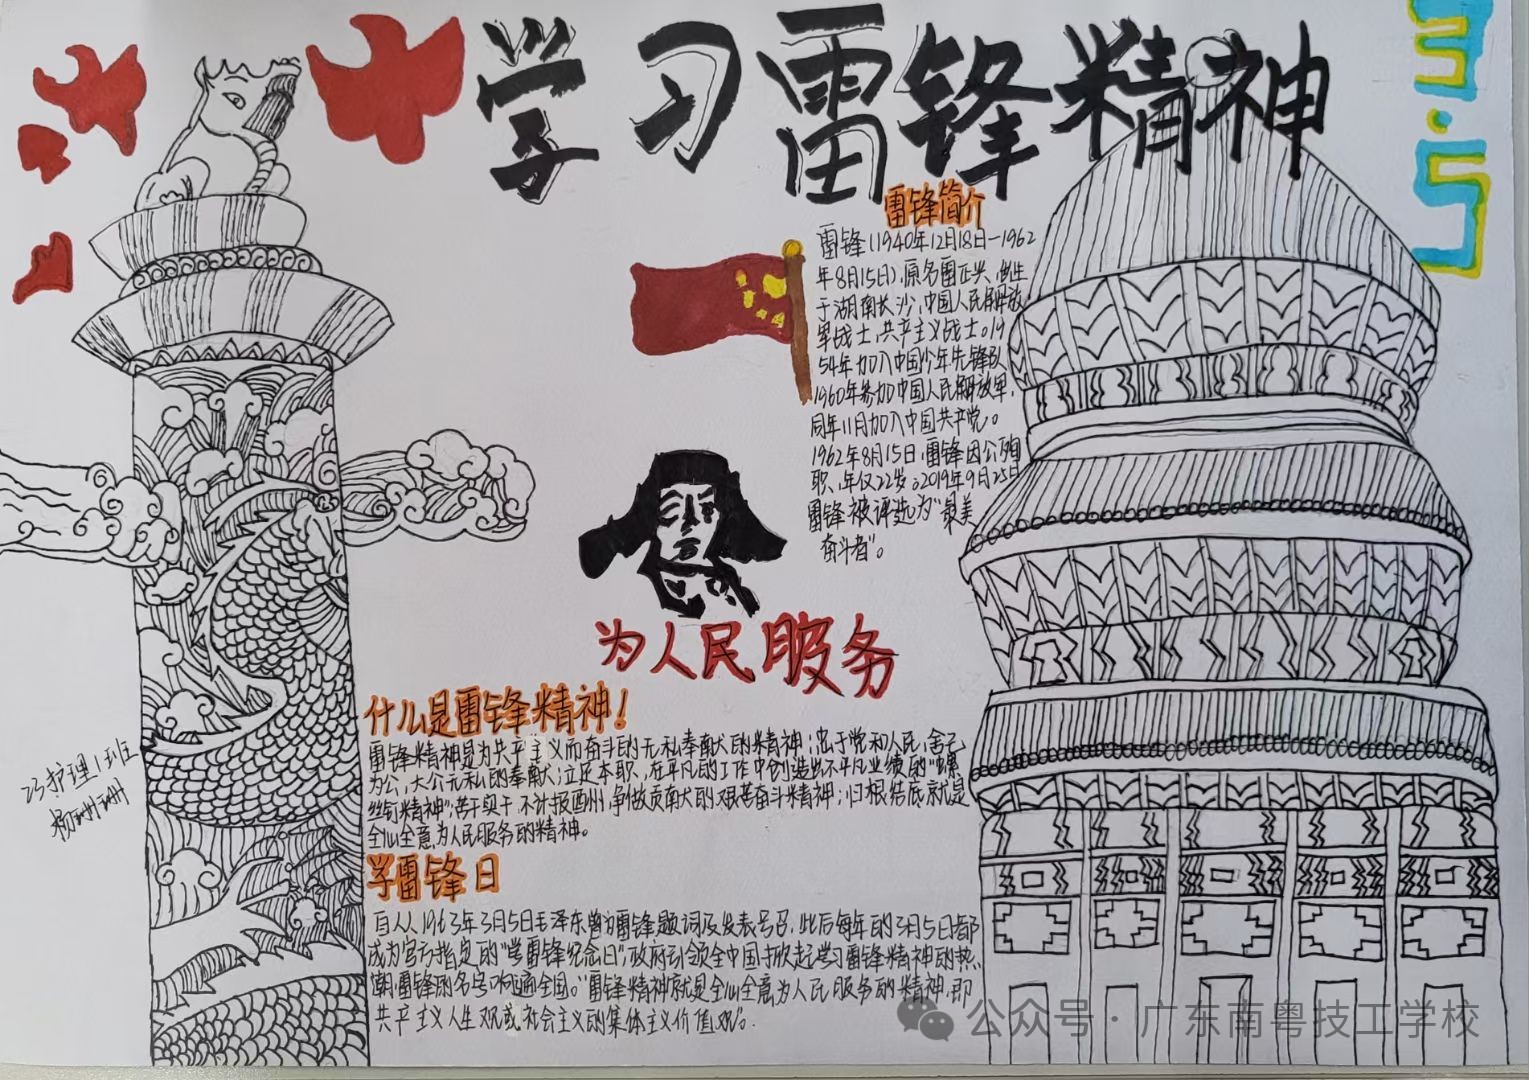 学习雷锋精神
3.5
雷锋简介
雷锋(1940年12月18日—1962
年8月15日),原名雷正兴,出生
于湖南长沙,中国人民解放
军战士,共产主义战士。19
54年加入中国少年先锋队
1960年参加中国人民解放军,
同年11月加入中国共产党。
1962年8月15日,雷锋因公殉
职,年仅22岁。2019年9月25日
雷锋被评选为"最美
奋斗者"。
为人民服务
什么是雷锋精神!
雷锋精神是为共产主义而奋斗的无私奉献的精神;忠于党和人民,舍己
为公,大公无私的奉献;立足本职,在平凡的工作中创造出不平凡业绩的"螺
丝钉精神";苦干实干,不计报酬,争做贡献的艰苦奋斗精神;归根结底就是
全心全意为人民服务的精神。
学雷锋日
自从1963年3月5日毛泽东曾为雷锋题词及发表号召,此后每年的3月5日都
成为官方指定的"学雷锋纪念日",政府引领全中国掀起学习雷锋精神的热
潮,雷锋的名字响遍全国。"雷锋精神就是全心全意为人民服务的精神,即
共产主义人生观或社会主义的集体主义价值观"。
23护理1班
公众号·广东南粤技工学校